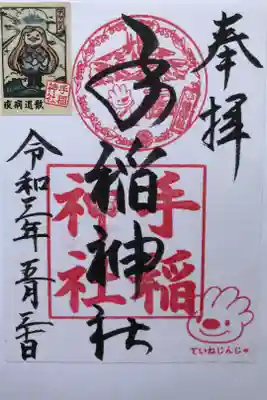 奉拝
手稲神社
手稲
神社
令和三年 五月三十日
疫病退散
手稲
神社
ていねじんじゃ